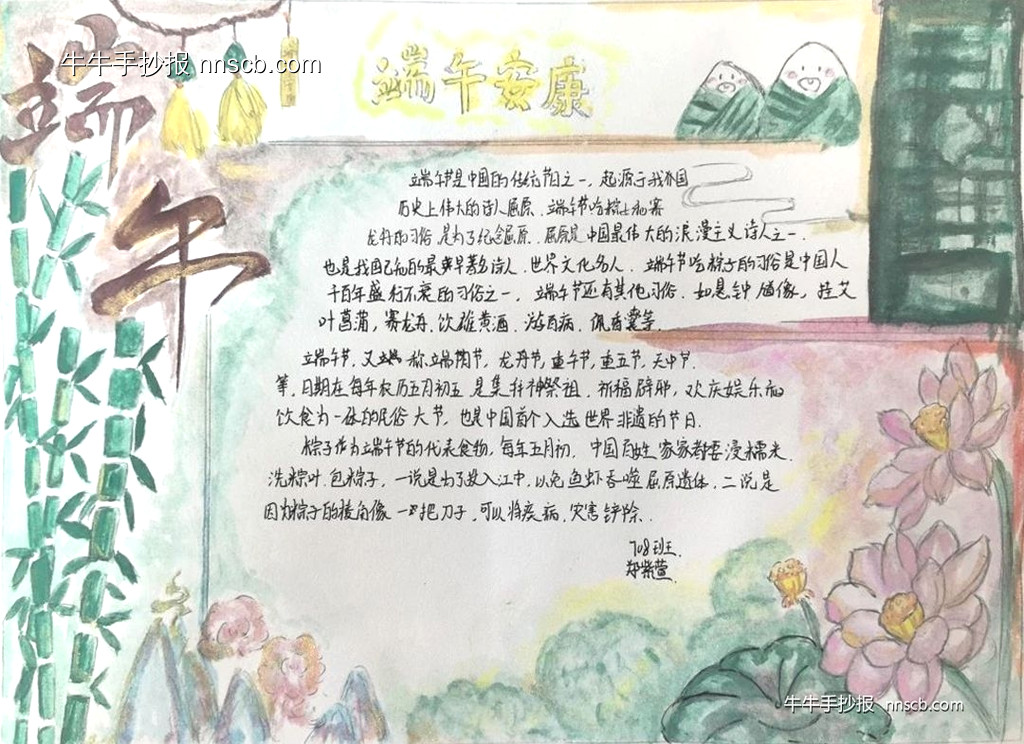 牛牛手抄报 nnscb.com
端午
端午安康
端午节是中国的传统节日之一，起源于我国
历史上伟大的诗人屈原、端午节吃粽士和赛
龙舟的习俗是为了纪念屈原．屈原是中国最伟大的浪漫主义诗人之一．
也是我国已知的最早著名诗人．世界文化名人．端午节吃粽子的习俗是中国人
千百年盛行不衰的习俗之一，端午节还有其他习俗．如悬钟馗像，挂艾
叶菖蒲，赛龙舟．饮雄黄酒．游百病．佩香囊等．
端午节，又 称端阳节，龙舟节，重午节，重五节，天中节．
等，日期在每年农历五月初五，是集拜神祭祖，祈福辟邪，欢庆娱乐和
饮食为一体的民俗大节，也是中国首个入选世界非遗的节日．
粽子作为端午节的代表食物，每年五月初，中国百姓家家都要浸糯米．
洗粽叶，包粽子，一说是为了投入江中，以免鱼虾吞噬屈原遗体，二说是
因为粽子的棱角像一把刀子，可以将疾病，灾害铲除．
708班．
郑紫萱．
牛牛手抄报 nnscb.com